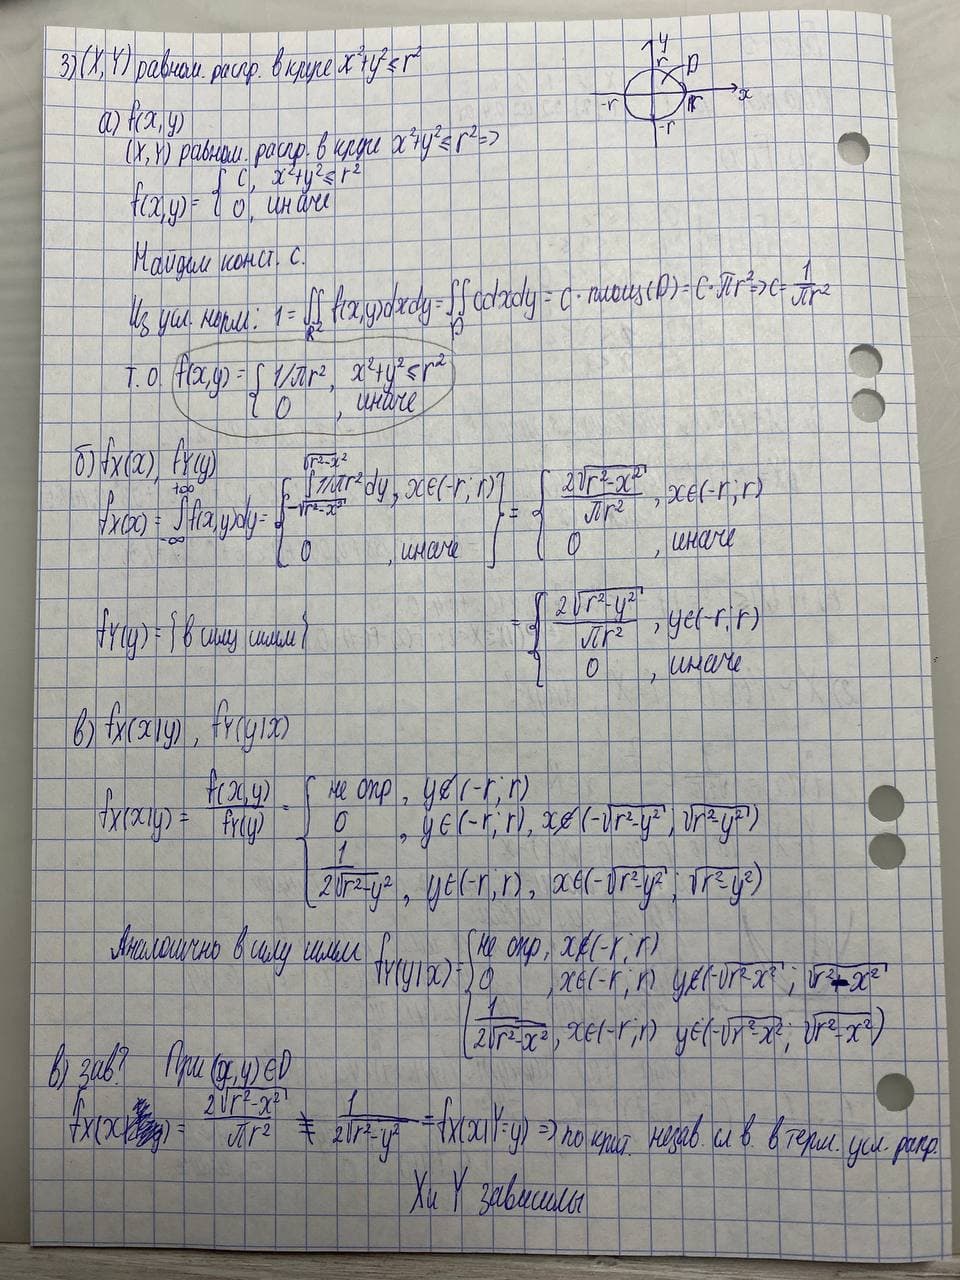 3) (X,Y) равном. распр. в круге x²+y²≤r²
y
r
D
-r
r
x
-r
а) f(x,y)
(X,Y) равном. распр. в круге x²+y²≤r² =>
f(x,y) = { c, x²+y²≤r²
0, иначе
Найдем конст. c.
Из усл. норм: 1 = ∬_{R²} f(x,y)dxdy = ∬_D cdxdy = c · площ(D) = c · πr² => c = 1/πr²
т. о. f(x,y) = { 1/πr², x²+y²≤r²
0, иначе
б) fx(x), fY(y)
fx(x) = ∫_{-∞}^{+∞} f(x,y)dy = { ∫_{-√(r²-x²)}^{√(r²-x²)} 1/πr² dy, x∈(-r; r) } = { 2√(r²-x²)/πr², x∈(-r; r)
0, иначе 0, иначе
fY(y) = {в силу симм} = { 2√(r²-y²)/πr², y∈(-r; r)
0, иначе
в) fx(x|y), fY(y|x)
fx(x|y) = f(x,y)/fY(y) = { не опр, y∉(-r; r)
0, y∈(-r; r), x∉(-√(r²-y²); √(r²-y²))
1/2√(r²-y²), y∈(-r; r), x∈(-√(r²-y²); √(r²-y²))
Аналогично в силу симм fY(y|x) = { не опр, x∉(-r; r)
0, x∈(-r; r) y∉(-√(r²-x²); √(r²-x²)
1/2√(r²-x²), x∈(-r; r) y∈(-√(r²-x²; √(r²-x²)
в) зав? При (x,y)∈D
fx(x) = 2√(r²-x²)/πr² ≠ 1/2√(r²-y²) = fx(x|Y=y) => по крит. незав. сл в. в терм. усл. распр.
X и Y зависимы